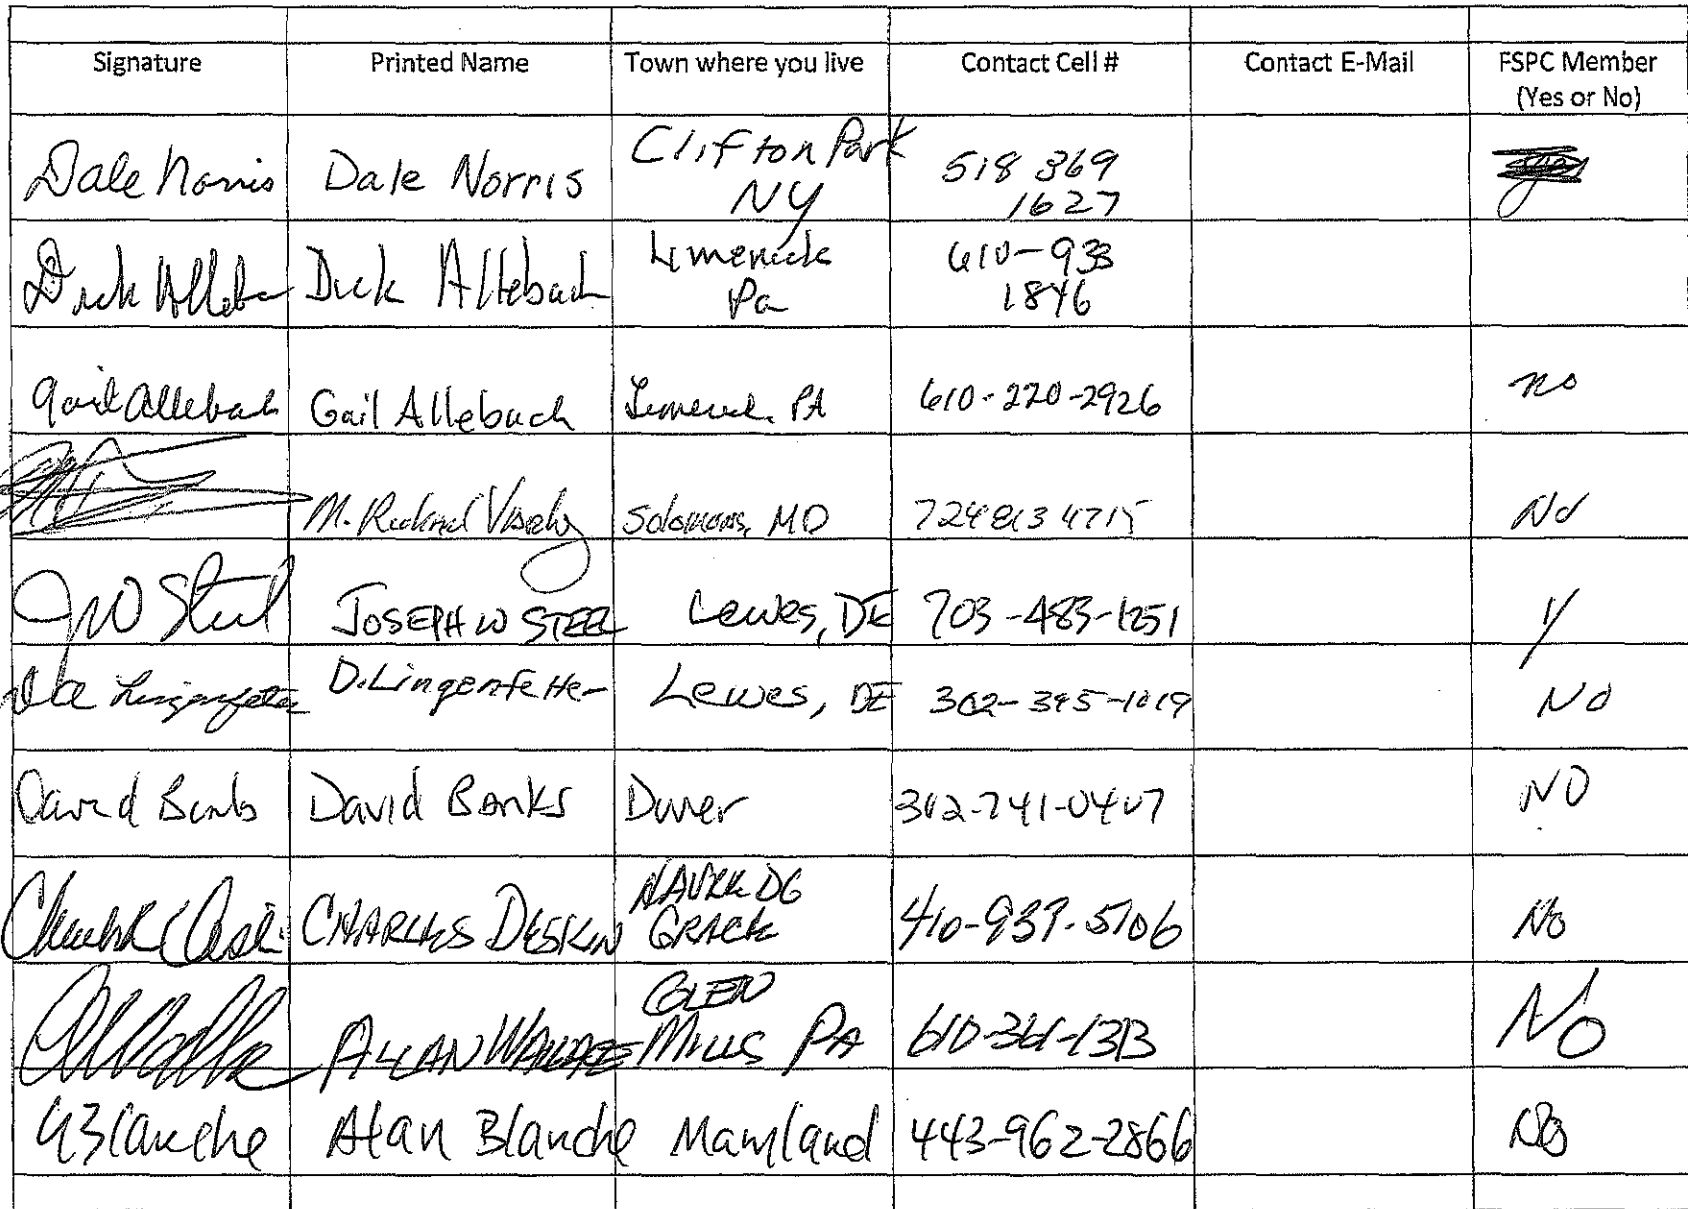 Signature Printed Name Town where you live Contact Cell # Contact E-Mail FSPC Member
(Yes or No)
Dale Norris Dale Norris Clifton Park 518 369
NY 1627
Dick Dick Allebach Limerick 610-933
Pa 1846
Gail Allebach Gail Allebach Limerick, PA 610-220-2926 no
M. Richard Solomons, MD No
JW Steel JOSEPH W STEEL Lewes, DE 703-483-1251 Y
Dee Lingenfelter D. Lingenfelter Lewes, DE 302-345-1019 No
David Banks David Banks Dover 302-741-0407 NO
HAVRE DE
CHARLES DESKIN GRACE 410-939-5106 No
GLEN
ALLAN WALLACE MILLS PA 610-361-1313 No
A Blanche Alan Blanche Maryland 443-962-2866 No